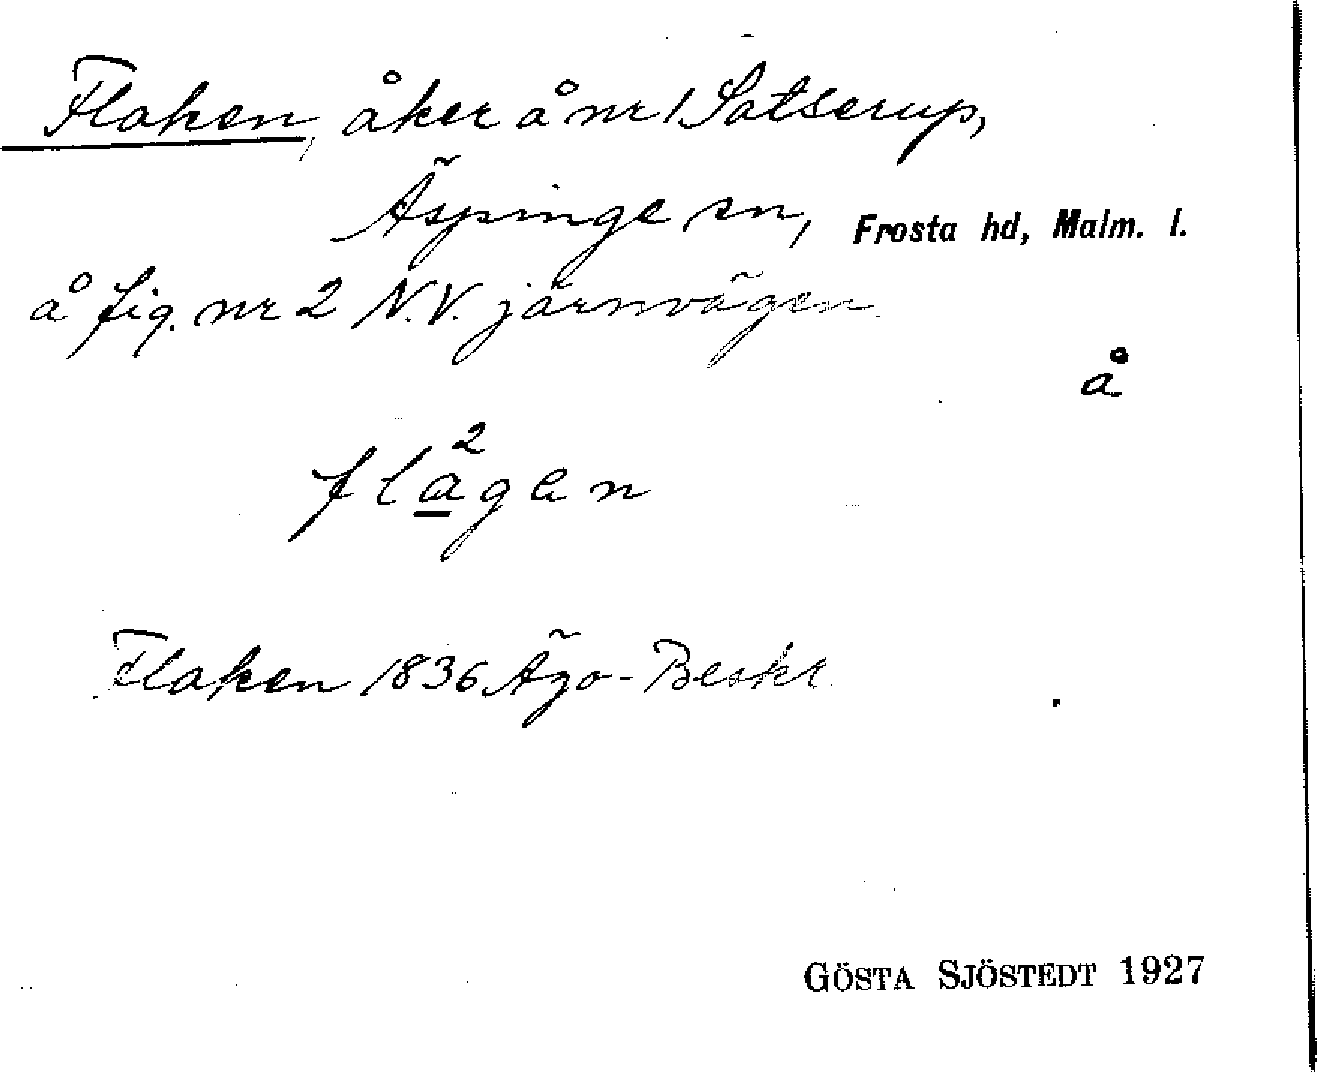 Flaken, åker å nr 1 Satserup,
Äspinge sn, Frosta hd, Malm. l.
å fig. nr 2 N.V. järnvägen.
å
flågen
2
Flaken 1836 Ägo-Beskr.
GÖSTA SJÖSTEDT 1927